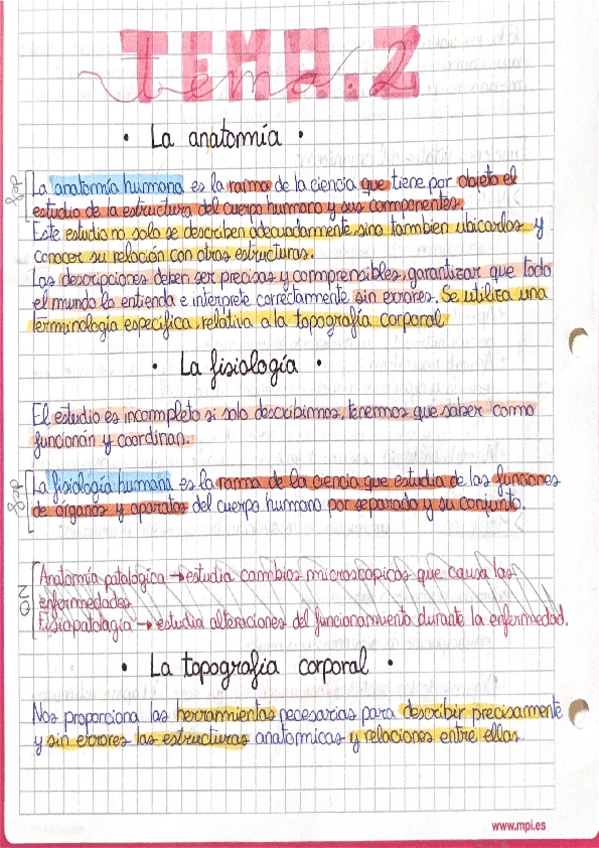 TEMA.2
tema.2
· La anatomía ·
def
La anatomía humana es la rama de la ciencia que tiene por objeto el
estudio de la estructura del cuerpo humano y sus componentes.
Este estudio no solo se describen adecuadamente, sino tambien ubicarlos y
conocer su relación con otras estructuras.
Las descripciones deben ser precisas y comprensibles, garantizar que todo
el mundo la entienda e interprete correctamente sin errores. Se utiliza una
terminología especifica, relativa a la topografía corporal
· La fisiología ·
El estudio es incompleto si solo describimos, tenemos que saber como
funcionan y coordinan.
def
La fisiología humana es la rama de la ciencia que estudia de las funciones
de órganos y aparatos del cuerpo humano por separado y su conjunto.
NO
Anatomía patologica → estudia cambios microscopicos que causa las
enfermedades
Fisiopatologia → estudia alteraciones del funcionamiento durante la enfermedad.
· La topografia corporal ·
Nos proporciona las herramientas necesarias para describir precisamente
y sin errores las estructuras anatomicas y relaciones entre ellas.
www.mpi.es